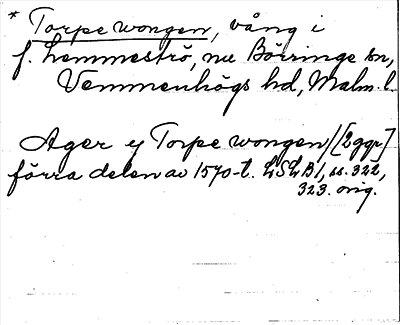 * Torpe wongen, vång i
f. Lemmeströ, nu Börringe sn,
Vemmenhögs hd, Malm. l.
Ager y Torpe wongen/[2 ggr]
förra delen av 1570-t. LSLB 1, ss. 322,
323. orig.